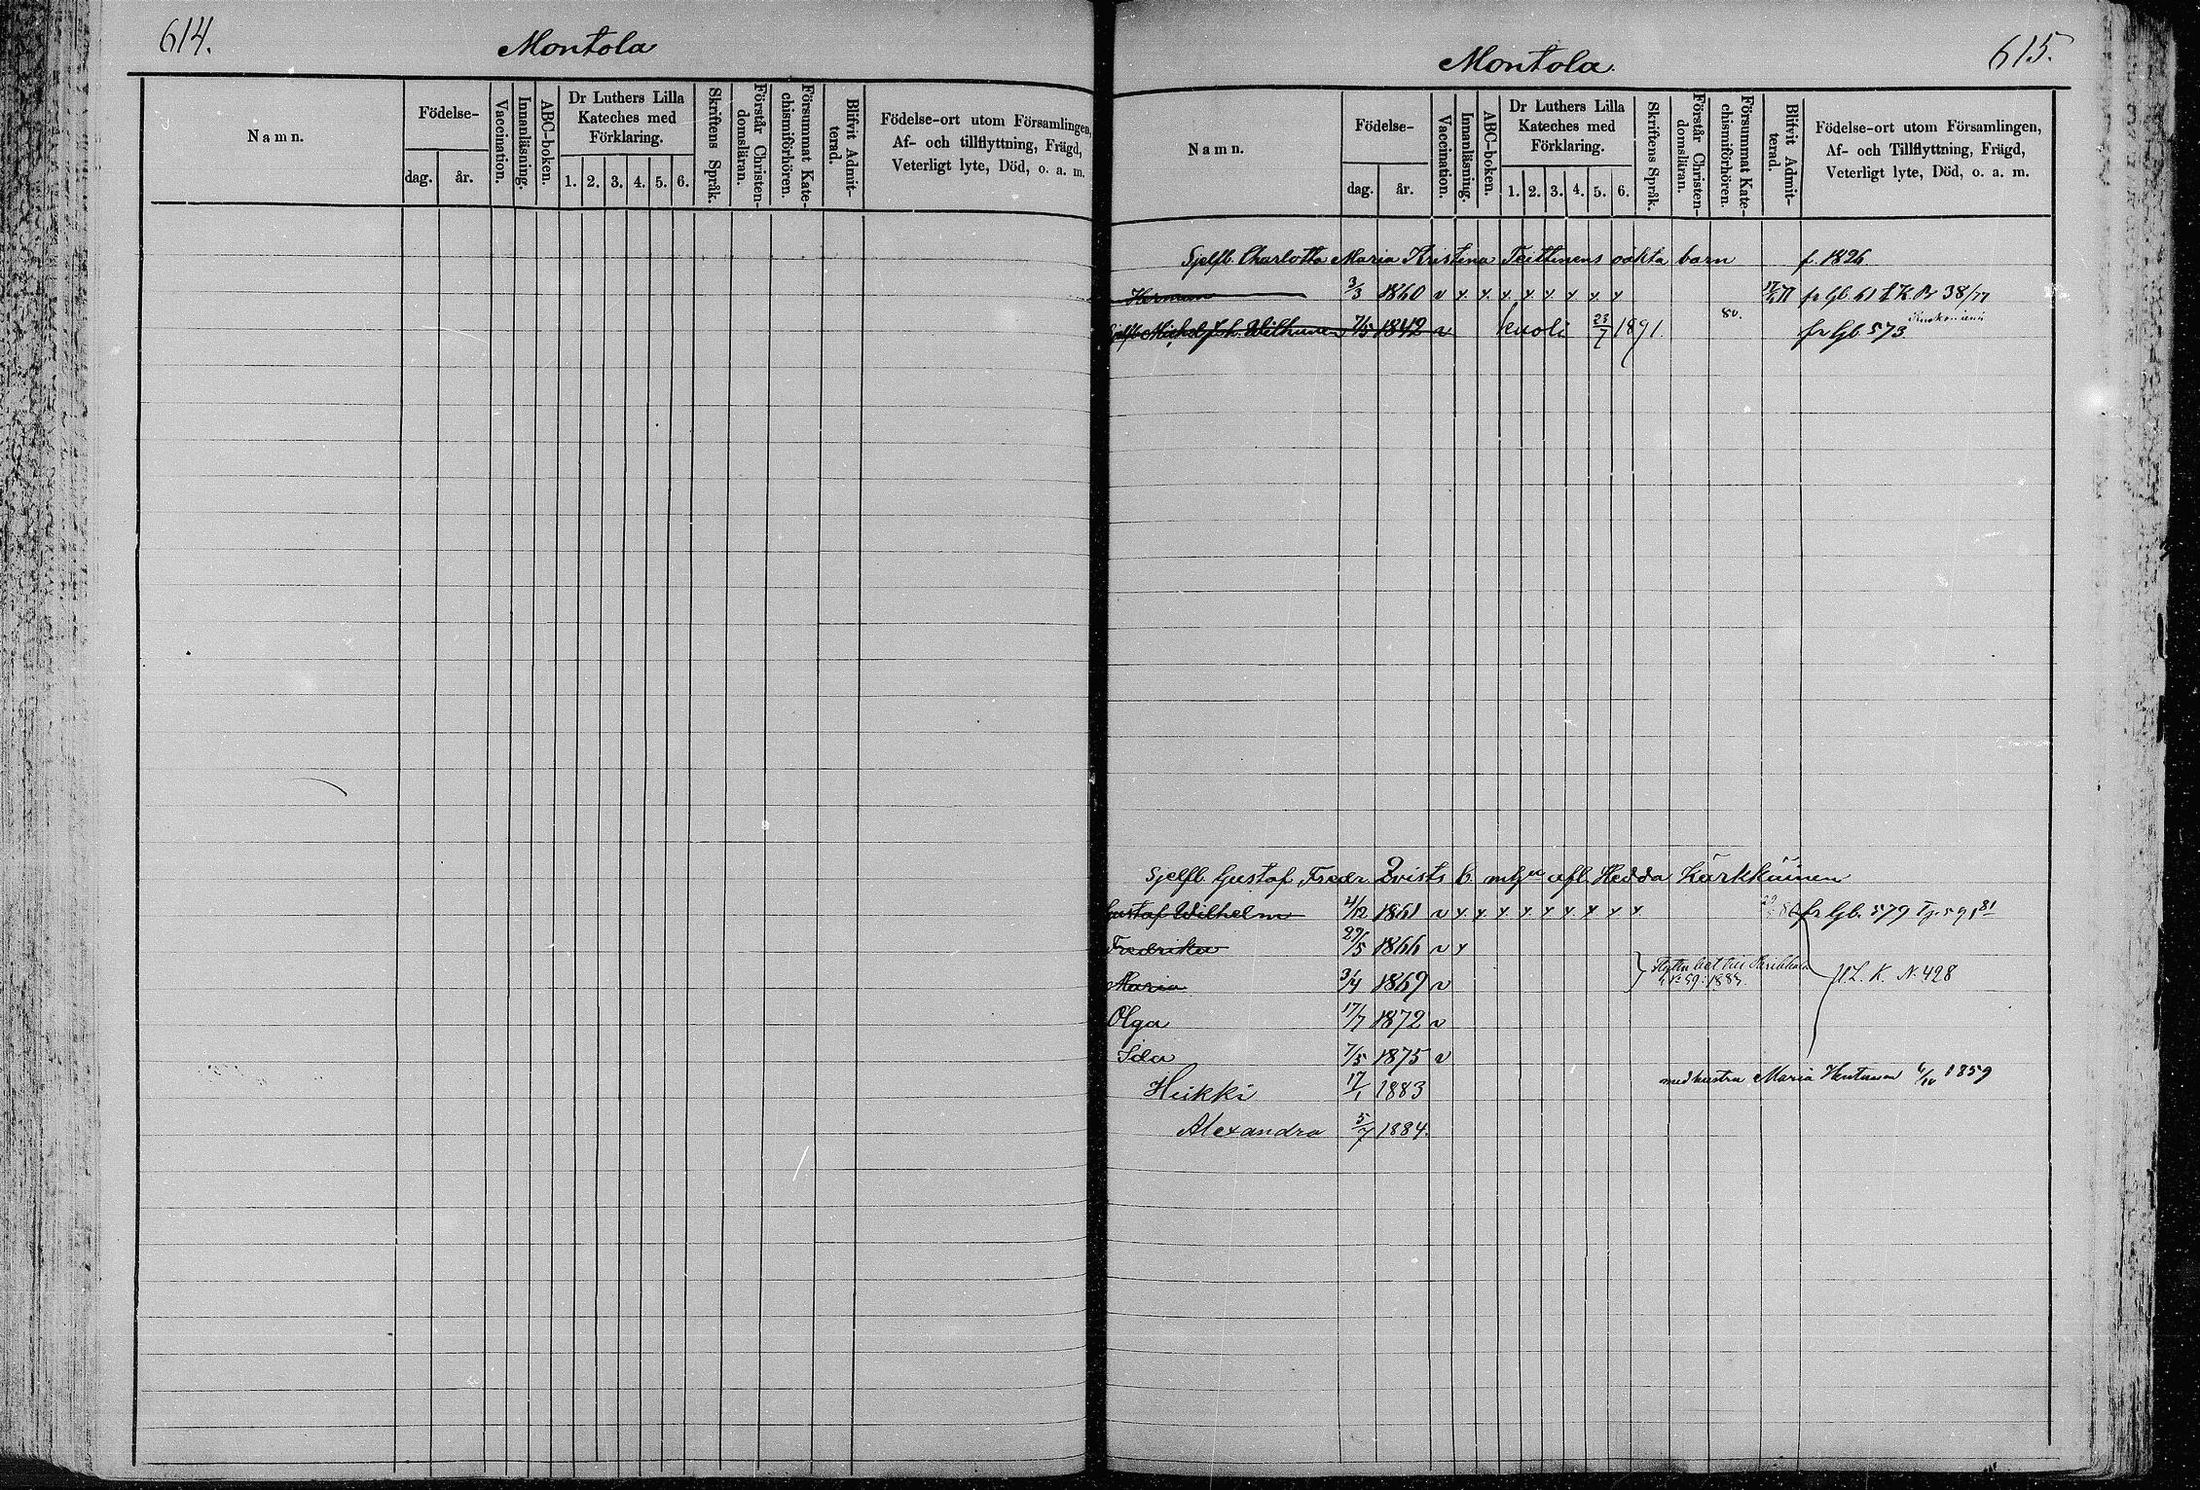 614.
Montola
Namn.
Födelse-
dag.
år.
Vaccination.
Innanläsning.
ABC-boken.
Dr Luthers Lilla
Kateches med
Förklaring.
1. 2. 3. 4. 5. 6.
Skriftens Språk.
Förstår Christen-
domsläran.
Försummat Kate-
chismiförhören.
Blifvit Admit-
terad.
Födelse-ort utom Församlingen,
Af- och tillflyttning, Frägd,
Veterligt lyte, Död, o. a. m.
Montola.
615.
Namn.
Födelse-
dag.
år.
Vaccination.
Innanläsning.
ABC-boken.
Dr Luthers Lilla
Kateches med
Förklaring.
1. 2. 3. 4. 5. 6.
Skriftens Språk.
Förstår Christen-
domsläran.
Försummat Kate-
chismiförhören.
Blifvit Admit-
terad.
Födelse-ort utom Församlingen,
Af- och Tillflyttning, Frägd,
Veterligt lyte, Död, o. a. m.
Sjelfb. Charlotta Maria Kristina Teittinens oäkta barn f. 1826
Herman 3/3 1860 v y y y y y y y y fr Gb. 61 38/77
Sjelfb. Michel Joh. Wilhunen 7/5 1842 v kuoli 23/7 1891. 80. fr Gb. 573
Sjelfb. Gustaf Fredr. Qvists b. afl. Hedda Kärkkäinen
Gustaf Wilhelm 4/12 1861 v y y y y y y y y y fr Gb. 579 591 81
Fredrika 29/5 1866 v y
Maria 3/4 1869 v No 59: 1887. K. N. 428
Olga 17/7 1872 v
Ida 7/5 1875 v
Heikki 17/1 1883 med hustru Maria 1859
Alexandra 5/7 1884.